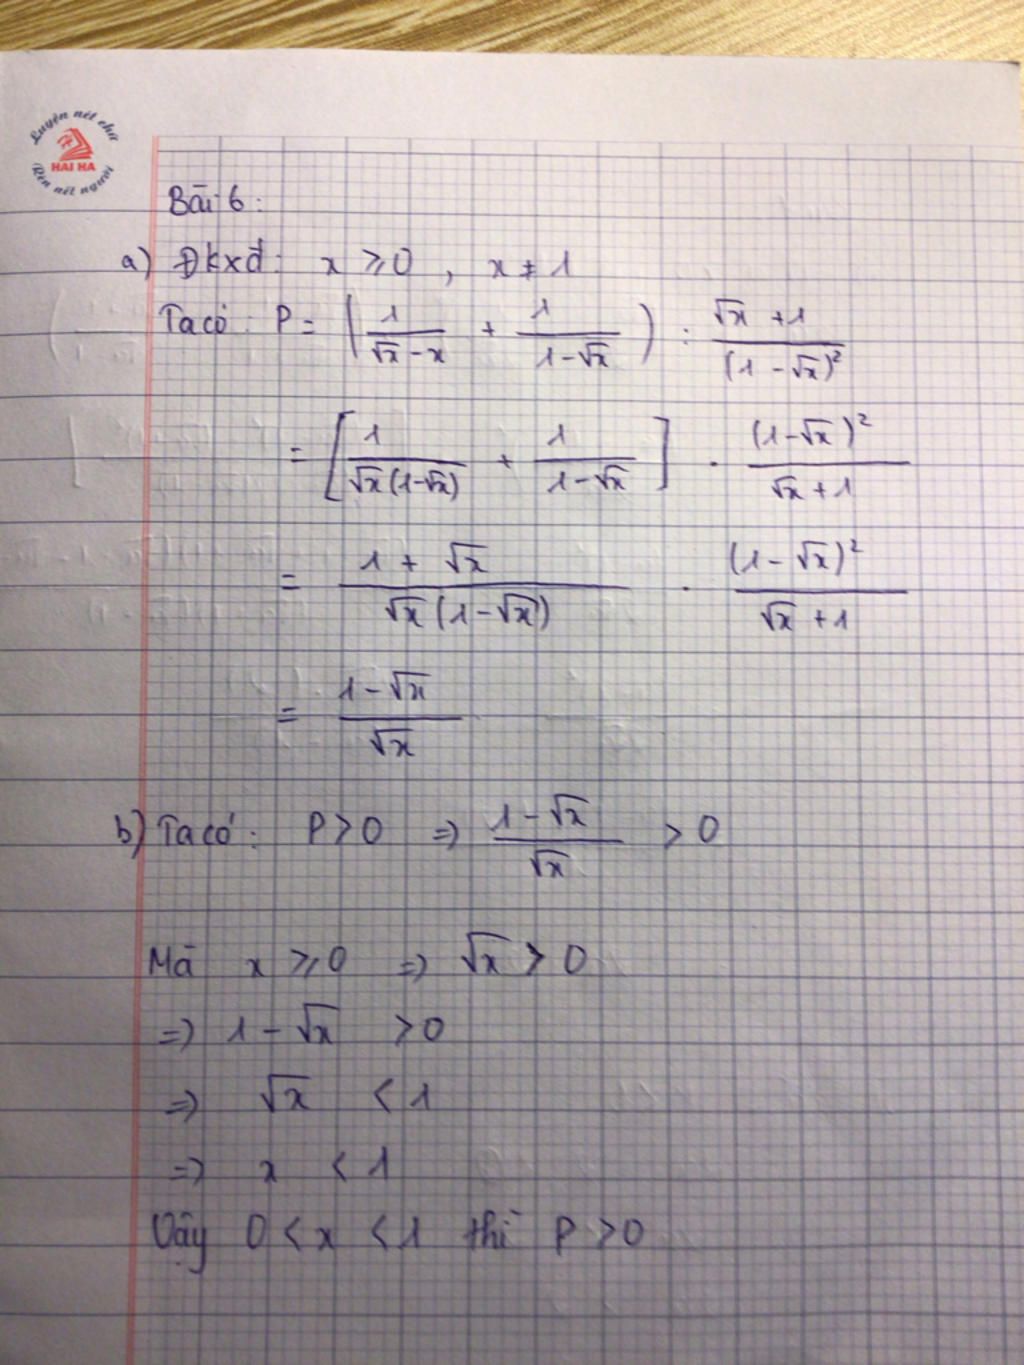 Luyện nét chữ
HẢI HÀ
Rèn nết người
Bài 6:
a) Đkxđ: x ⩾ 0 , x ≠ 1
Ta có: P = ( 1/(√x - x) + 1/(1 - √x) ) : (√x + 1)/(1 - √x)²
= [ 1/(√x(1-√x)) + 1/(1-√x) ] . (1-√x)²/(√x + 1)
= (1 + √x)/(√x(1-√x)) . (1 - √x)²/(√x + 1)
= (1 - √x)/√x
b) Ta có: P > 0 => (1 - √x)/√x > 0
Mà x ⩾ 0 => √x > 0
=> 1 - √x > 0
=> √x < 1
=> x < 1
Vậy 0 < x < 1 thì P > 0